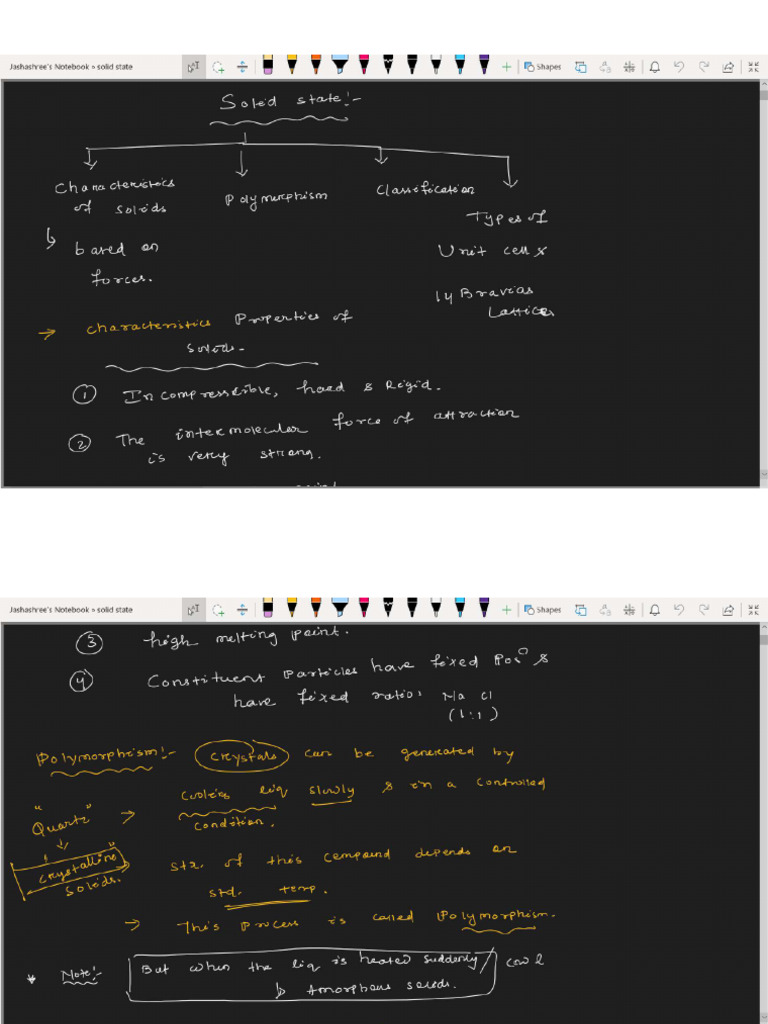 Jashashree's Notebook » solid state
Shapes
Solid state:-
Characteristics of solids
Polymorphism
Classification
Types of Unit cell &
14 Bravias Lattices
based on forces.
→ Characteristics Properties of solids.
① Incompressible, hard & Rigid.
② The intermolecular force of attraction
is very strong.
Jashashree's Notebook » solid state
Shapes
③ high melting point.
④ Constituent Particles have fixed Posⁿ &
have fixed ratio: NaCl
(1:1)
Polymorphism:- Crystals can be generated by
cooling liq slowly & in a controlled
condition.
"Quartz"
↓
Crystalline solids.
→ str. of this compound depends on
std. temp.
→ This Process is called Polymorphism.
* Note:- But when the liq is heated suddenly / cool
↳ Amorphous solids.